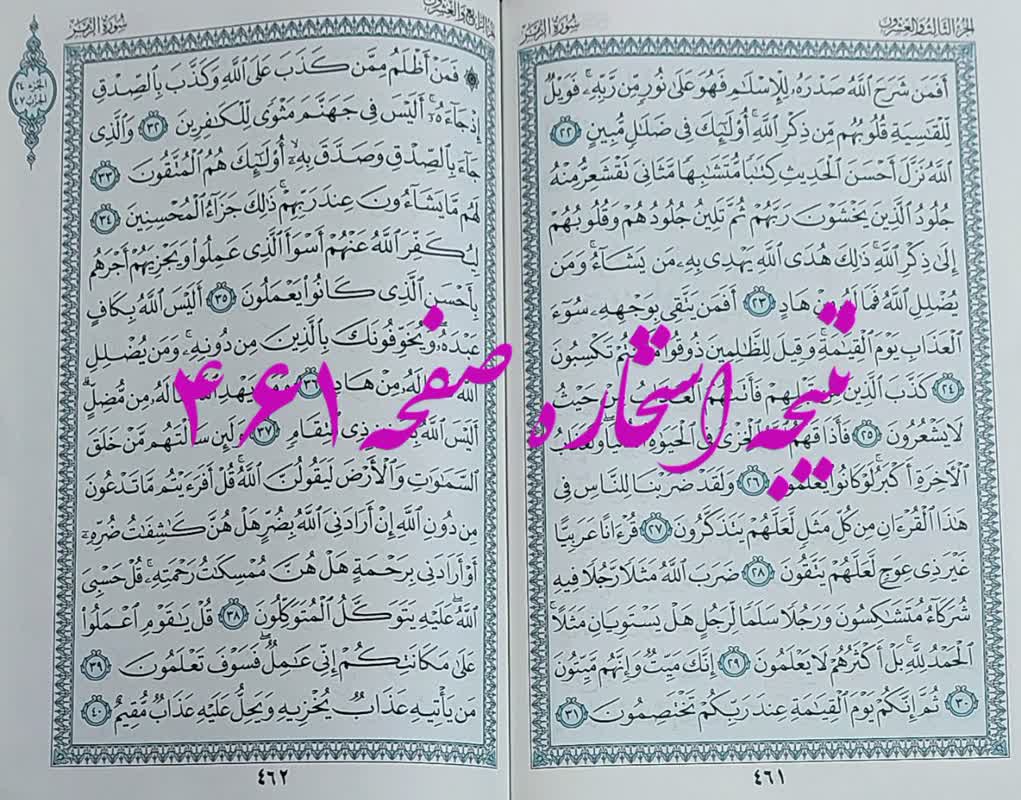 الجزء الثالث والعشرون
سورة الزمر
أَفَمَن شَرَحَ ٱللَّهُ صَدْرَهُۥ لِلْإِسْلَٰمِ فَهُوَ عَلَىٰ نُورٍ مِّن رَّبِّهِۦ ۚ فَوَيْلٌ
لِّلْقَٰسِيَةِ قُلُوبُهُم مِّن ذِكْرِ ٱللَّهِ ۚ أُو۟لَٰٓئِكَ فِى ضَلَٰلٍ مُّبِينٍ ٢٢
ٱللَّهُ نَزَّلَ أَحْسَنَ ٱلْحَدِيثِ كِتَٰبًا مُّتَشَٰبِهًا مَّثَانِىَ تَقْشَعِرُّ مِنْهُ
جُلُودُ ٱلَّذِينَ يَخْشَوْنَ رَبَّهُمْ ثُمَّ تَلِينُ جُلُودُهُمْ وَقُلُوبُهُمْ
إِلَىٰ ذِكْرِ ٱللَّهِ ۚ ذَٰلِكَ هُدَى ٱللَّهِ يَهْدِى بِهِۦ مَن يَشَآءُ ۚ وَمَن
يُضْلِلِ ٱللَّهُ فَمَا لَهُۥ مِنْ هَادٍ ٢٣ أَفَمَن يَتَّقِى بِوَجْهِهِۦ سُوٓءَ
ٱلْعَذَابِ يَوْمَ ٱلْقِيَٰمَةِ ۚ وَقِيلَ لِلظَّٰلِمِينَ ذُوقُوا۟ مَا كُنتُمْ تَكْسِبُونَ
٢٤ كَذَّبَ ٱلَّذِينَ مِن قَبْلِهِمْ فَأَتَىٰهُمُ ٱلْعَذَابُ مِنْ حَيْثُ
لَا يَشْعُرُونَ ٢٥ فَأَذَاقَهُمُ ٱللَّهُ ٱلْخِزْىَ فِى ٱلْحَيَوٰةِ ٱلدُّنْيَا ۖ وَلَعَذَابُ
ٱلْءَاخِرَةِ أَكْبَرُ ۚ لَوْ كَانُوا۟ يَعْلَمُونَ ٢٦ وَلَقَدْ ضَرَبْنَا لِلنَّاسِ فِى
هَٰذَا ٱلْقُرْءَانِ مِن كُلِّ مَثَلٍ لَّعَلَّهُمْ يَتَذَكَّرُونَ ٢٧ قُرْءَانًا عَرَبِيًّا
غَيْرَ ذِى عِوَجٍ لَّعَلَّهُمْ يَتَّقُونَ ٢٨ ضَرَبَ ٱللَّهُ مَثَلًا رَّجُلًا فِيهِ
شُرَكَآءُ مُتَشَٰكِسُونَ وَرَجُلًا سَلَمًا لِّرَجُلٍ هَلْ يَسْتَوِيَانِ مَثَلًا ۚ
ٱلْحَمْدُ لِلَّهِ ۚ بَلْ أَكْثَرُهُمْ لَا يَعْلَمُونَ ٢٩ إِنَّكَ مَيِّتٌ وَإِنَّهُم مَّيِّتُونَ
٣٠ ثُمَّ إِنَّكُمْ يَوْمَ ٱلْقِيَٰمَةِ عِندَ رَبِّكُمْ تَخْتَصِمُونَ ٣١
٤٦١
الجزء الرابع والعشرون
سورة الزمر
الجزء ٢٤
الحزب ٤٧
۞ فَمَنْ أَظْلَمُ مِمَّن كَذَبَ عَلَى ٱللَّهِ وَكَذَّبَ بِٱلصِّدْقِ
إِذْ جَآءَهُۥٓ ۚ أَلَيْسَ فِى جَهَنَّمَ مَثْوًى لِّلْكَٰفِرِينَ ٣٢ وَٱلَّذِى
جَآءَ بِٱلصِّدْقِ وَصَدَّقَ بِهِۦٓ ۙ أُو۟لَٰٓئِكَ هُمُ ٱلْمُتَّقُونَ ٣٣
لَهُم مَّا يَشَآءُونَ عِندَ رَبِّهِمْ ۚ ذَٰلِكَ جَزَآءُ ٱلْمُحْسِنِينَ ٣٤
لِيُكَفِّرَ ٱللَّهُ عَنْهُمْ أَسْوَأَ ٱلَّذِى عَمِلُوا۟ وَيَجْزِيَهُمْ أَجْرَهُم
بِأَحْسَنِ ٱلَّذِى كَانُوا۟ يَعْمَلُونَ ٣٥ أَلَيْسَ ٱللَّهُ بِكَافٍ
عَبْدَهُۥ ۖ وَيُخَوِّفُونَكَ بِٱلَّذِينَ مِن دُونِهِۦ ۚ وَمَن يُضْلِلِ
ٱللَّهُ فَمَا لَهُۥ مِنْ هَادٍ ٣٦ وَمَن يَهْدِ ٱللَّهُ فَمَا لَهُۥ مِن مُّضِلٍّ ۗ
أَلَيْسَ ٱللَّهُ بِعَزِيزٍ ذِى ٱنتِقَامٍ ٣٧ وَلَئِن سَأَلْتَهُم مَّنْ خَلَقَ
ٱلسَّمَٰوَٰتِ وَٱلْأَرْضَ لَيَقُولُنَّ ٱللَّهُ ۚ قُلْ أَفَرَءَيْتُم مَّا تَدْعُونَ
مِن دُونِ ٱللَّهِ إِنْ أَرَادَنِىَ ٱللَّهُ بِضُرٍّ هَلْ هُنَّ كَٰشِفَٰتُ ضُرِّهِۦٓ
أَوْ أَرَادَنِى بِرَحْمَةٍ هَلْ هُنَّ مُمْسِكَٰتُ رَحْمَتِهِۦ ۚ قُلْ حَسْبِىَ
ٱللَّهُ ۖ عَلَيْهِ يَتَوَكَّلُ ٱلْمُتَوَكِّلُونَ ٣٨ قُلْ يَٰقَوْمِ ٱعْمَلُوا۟
عَلَىٰ مَكَانَتِكُمْ إِنِّى عَٰمِلٌ ۖ فَسَوْفَ تَعْلَمُونَ ٣٩
مَن يَأْتِيهِ عَذَابٌ يُخْزِيهِ وَيَحِلُّ عَلَيْهِ عَذَابٌ مُّقِيمٌ ٤٠
٤٦٢
نتیجه استخاره صفحه ۴۶۱